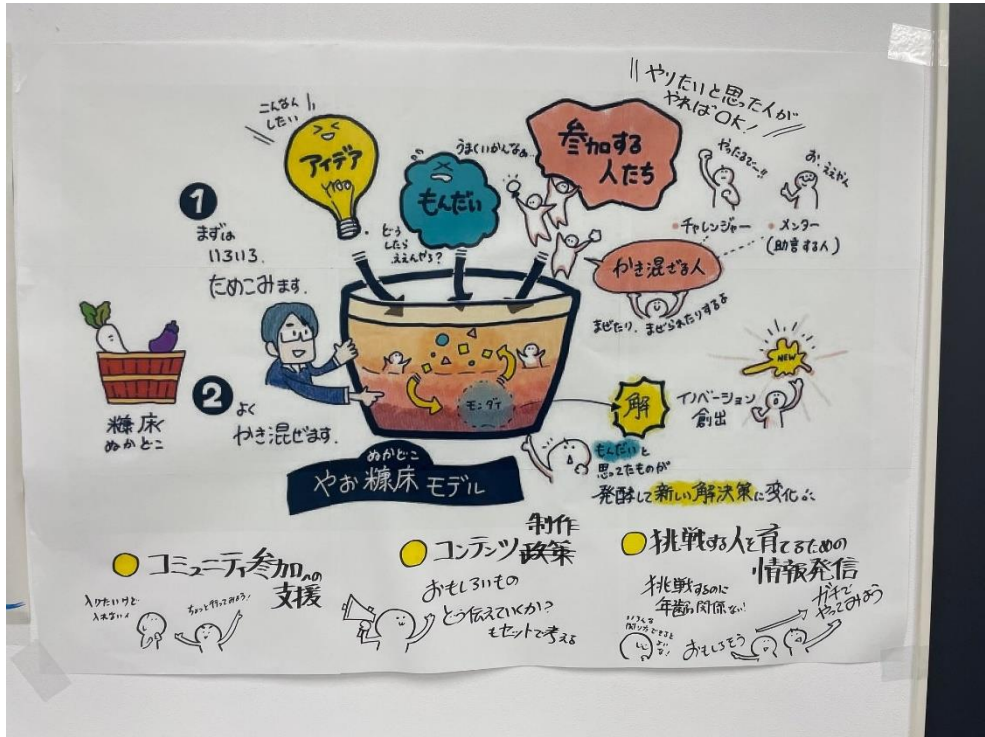 やりたいと思った人が
やればOK!
こんなん
したい
アイデア
うまくいかんなぁ…
もんだい
どう
したら
ええんやろ?
参加する
人たち
やったるでー!!
お、ええやん
・チャレンジャー
・メンター
(助言する人)
かき混ぜる人
まぜたり、まぜられたりするよ
1
まずは
いろいろ
ためこみます。
2
よく
かき混ぜます。
糠床
ぬかどこ
モンダイ
解
イノベーション
創出
NEW
もんだいと
思ってたものが
発酵して新しい解決策に変化
ぬかどこ
やお糠床モデル
コミュニティ参加への
支援
入りたいけど
入れない
ちょっと行ってみよう!
制作
コンテンツ政策
おもしろいもの
どう伝えていくか?
もセットで考える
挑戦する人を育てるための
情報発信
挑戦するのに
年齢関係ない!
ガチで
やってみよう
おもしろそう